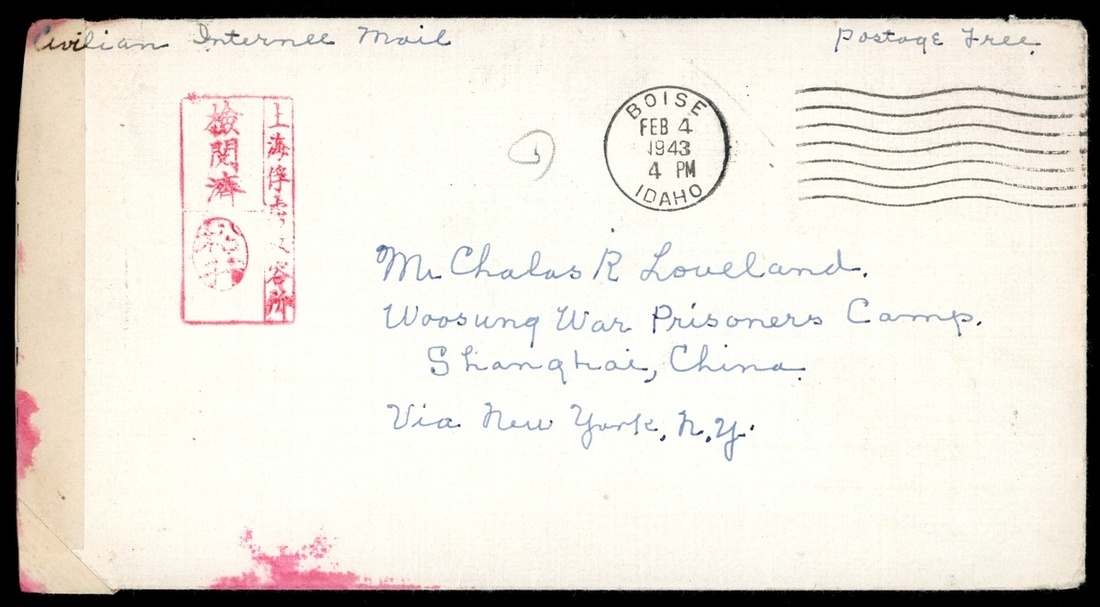 Civilian Internee Mail
Postage Free
上海俘虜收容所
檢閲濟
BOISE
FEB 4
1943
4 PM
IDAHO
Mr Chalas R Loveland.
Woosung War Prisoners Camp.
Shanghai, China
Via New York, N.Y.